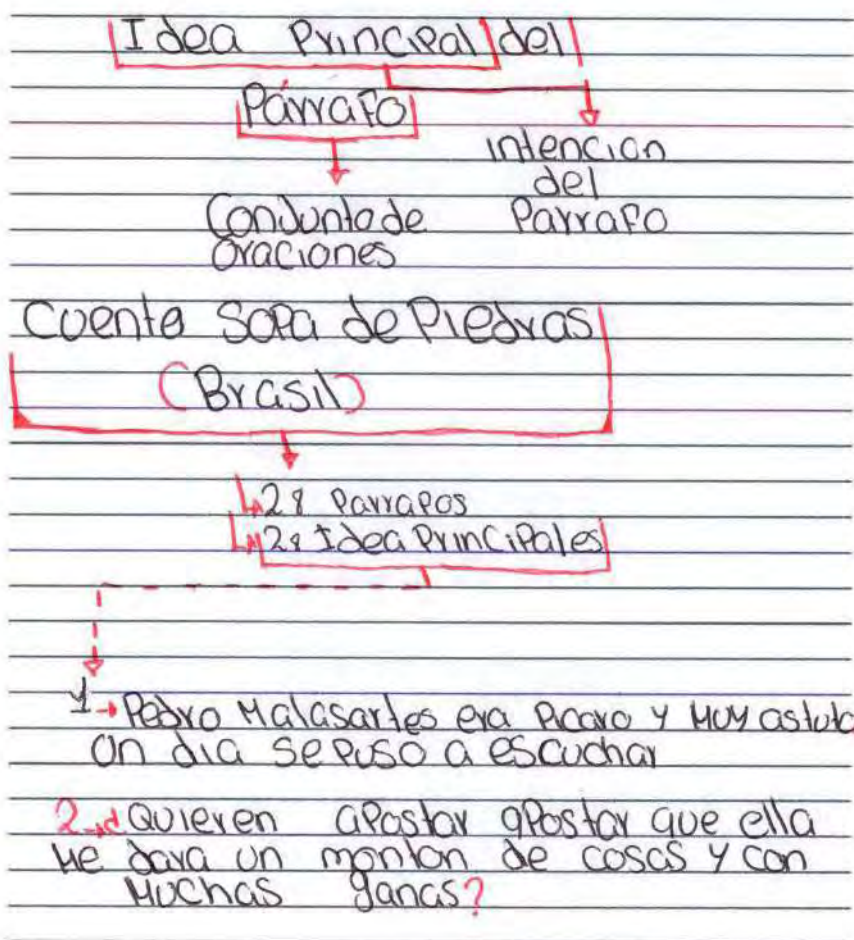 Idea Principal del
Párrafo
intencion
del
Parrafo
Conjunto de
Oraciones
Cuento Sopa de Piedras
(Brasil)
28 Parrafos
28 Idea Principales
1→ Pedro Malasartes era Picaro y Muy astuto
un dia se puso a escuchar
2→¿Quieren apostar apostar que ella
Me dara un monton de cosas y con
Muchas ganas?